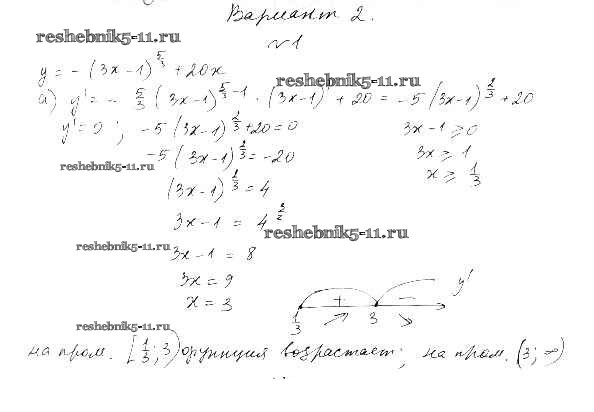 Вариант 2.
reshebnik5-11.ru
№1
y = -(3x-1)^{5/3} + 20x
reshebnik5-11.ru
а) y' = - 5/3 (3x-1)^{5/3 - 1} · (3x-1)' + 20 = -5(3x-1)^{2/3} + 20
y' = 0 ; -5(3x-1)^{2/3} + 20 = 0 3x-1 ≥ 0
-5(3x-1)^{2/3} = -20 3x ≥ 1
reshebnik5-11.ru
(3x-1)^{2/3} = 4 x ≥ 1/3
3x-1 = 4^{3/2}
reshebnik5-11.ru
reshebnik5-11.ru
3x-1 = 8
3x = 9
x = 3
+ - y'
1/3 3
reshebnik5-11.ru
на пром. [1/3; 3) функция возрастает; на пром. (3; ∞)